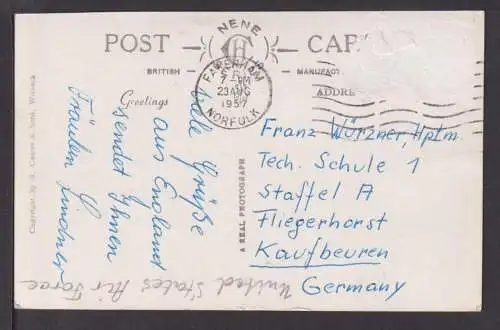 POST CARD
BRITISH MANUFACT
NENE
FAKENHAM
7-PM
23 AUG
1957
NORFOLK
Greetings
ADDRE
Viele Grüße
aus England
sendet Ihnen
Fräulein Lindner
A REAL PHOTOGRAPH
Franz Würzner, Hptm.
Tech. Schule 1
Staffel A
Fliegerhorst
Kaufbeuren
Germany
United States Air Force
Copyright, by